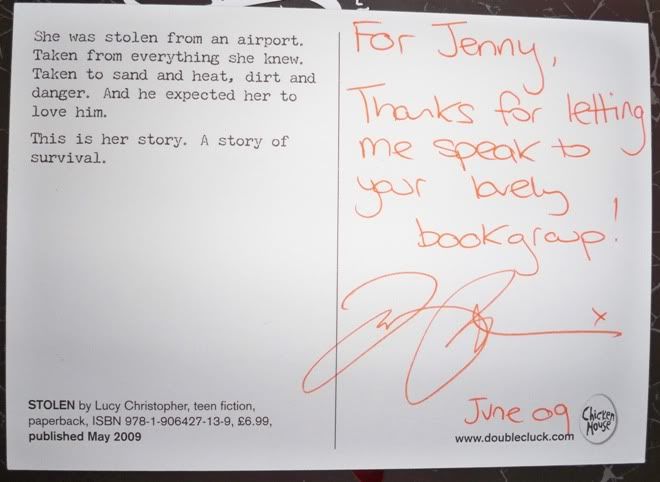 She was stolen from an airport.
Taken from everything she knew.
Taken to sand and heat, dirt and
danger. And he expected her to
love him.
This is her story. A story of
survival.
STOLEN by Lucy Christopher, teen fiction,
paperback, ISBN 978-1-906427-13-9, £6.99,
published May 2009
For Jenny,
Thanks for letting
me speak to
your lovely
bookgroup!
x
June 09
www.doublecluck.com
Chicken
House